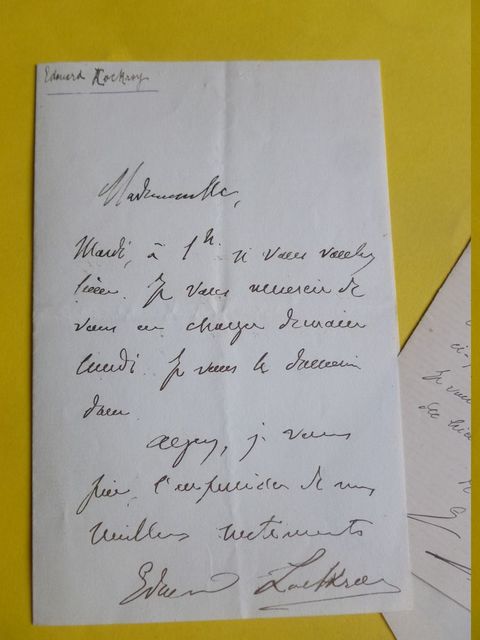 Edouard Lockroy
Mademoiselle,
Mardi, à 1h si vous voulez
bien. Je vous remercie de
vous en charger demain
lundi. Je vous le
Agréez, je vous
prie, l'expression de mes
meilleurs sentiments
Edouard Lockroy